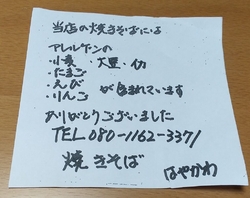 当店の焼きそばには
アレルゲンの
・小麦 ・大豆 ・イカ
・たまご
・えび が含まれています
・りんご
ありがとうございました
TEL 080-1162-3371
焼きそば はやかわ